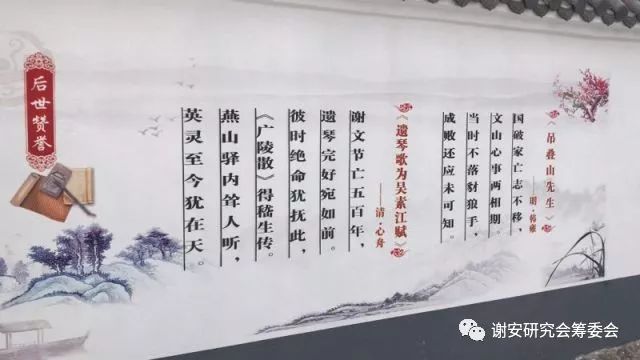 后世赞誉
《吊叠山先生》
——明·韩雍
国破家亡志不移，
文山心事两相期。
当时不落豺狼手，
成败还应未可知。
《遗琴歌为吴素江赋》
——清·心舟
谢文节亡五百年，
遗琴完好宛如前。
彼时绝命犹抚此，
《广陵散》得嵇生传。
燕山驿内耸人听，
英灵至今犹在天。
谢安研究会筹委会